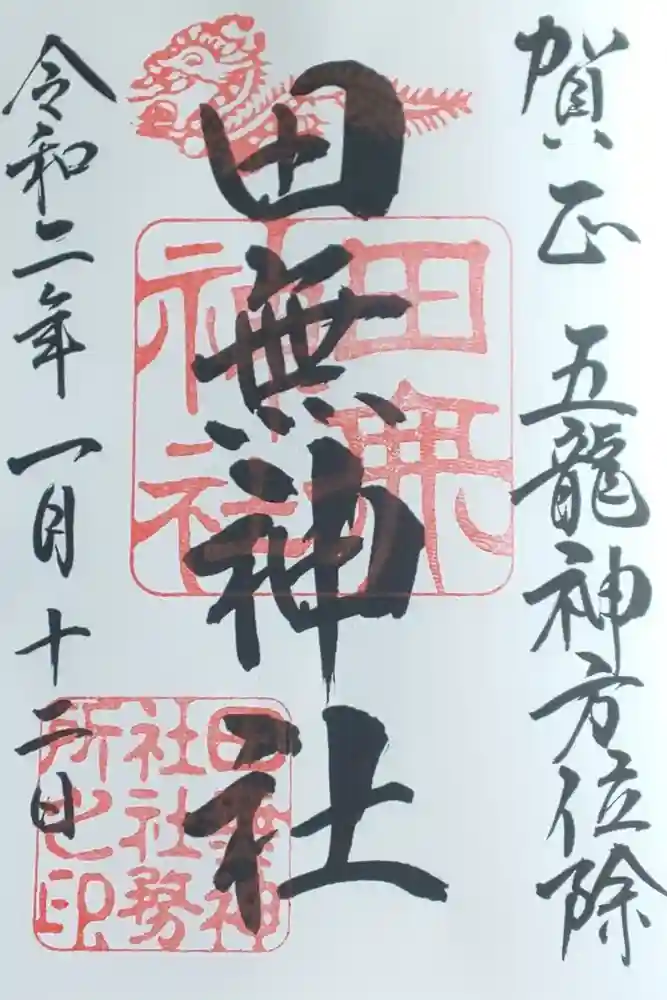 賀正 五龍神方位除
田無神社
令和二年一月十二日
田無神社
田無神社社務所之印